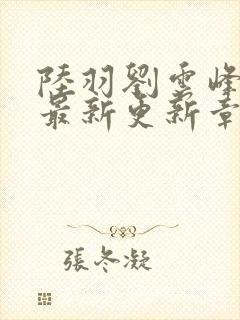 陸羽劉雲峰
最新更新章
張冬凝